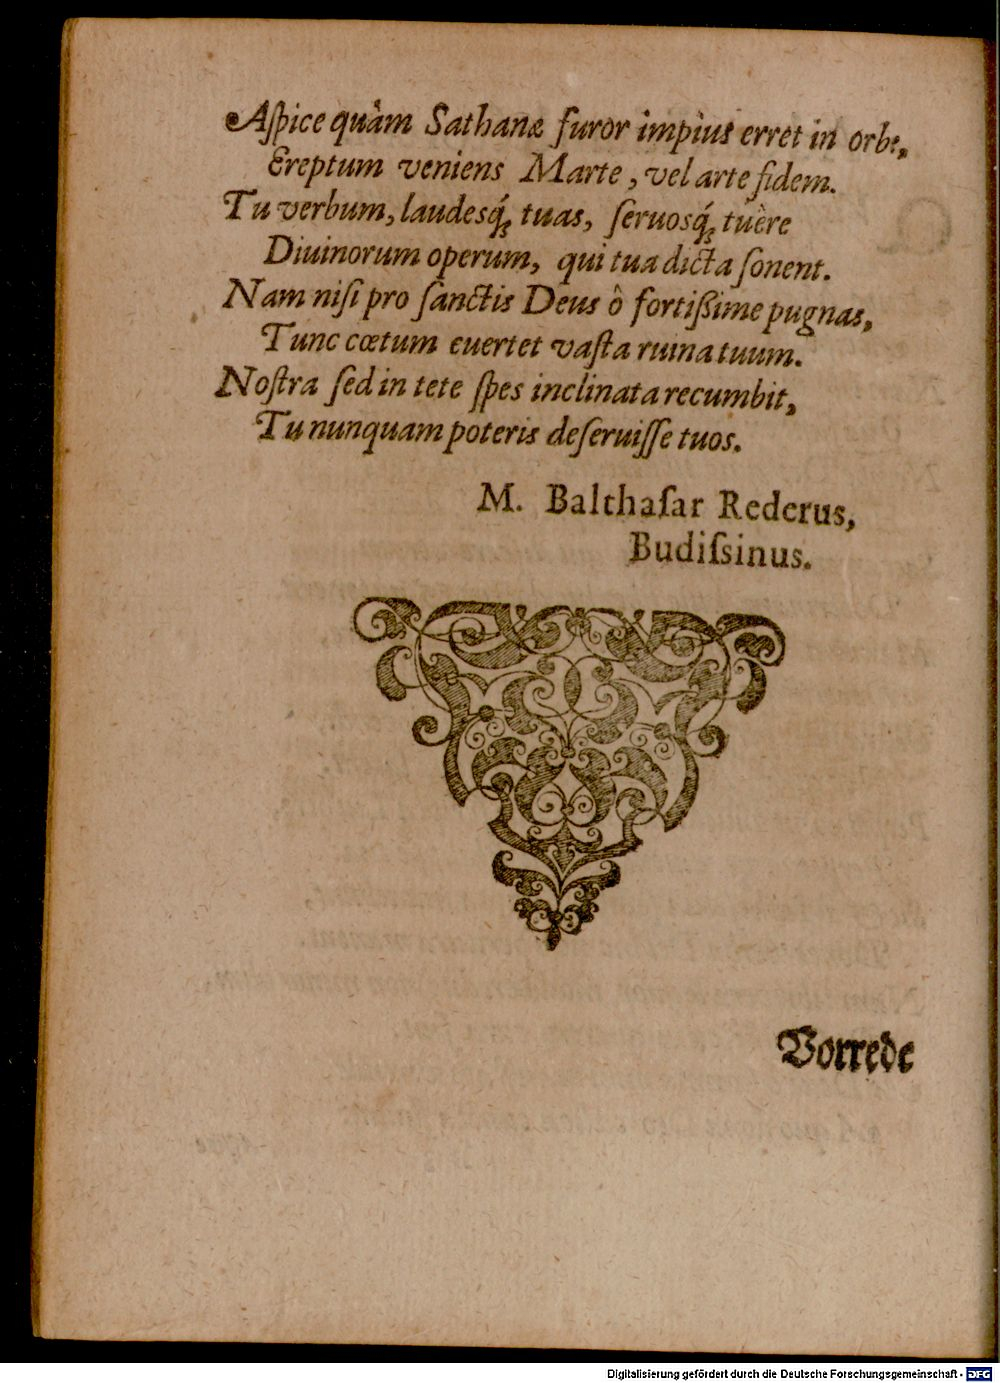 Aſpice quàm Sathanæ furor impius erret in orbe,
Ereptum veniens Marte, vel arte fidem.
Tu verbum, laudesq́; tuas, ſeruosq́; tuère
Diuinorum operum, qui tua dicta ſonent.
Nam niſi pro ſanctis Deus ô fortißime pugnas,
Tunc cœtum euertet vaſta ruina tuum.
Noſtra ſed in te te ſpes inclinata recumbit,
Tu nunquam poteris deſeruiſſe tuos.
M. Balthaſar Rederus,
Budiſsinus.
Vorrede
Digitalisierung gefördert durch die Deutsche Forschungsgemeinschaft - DFG